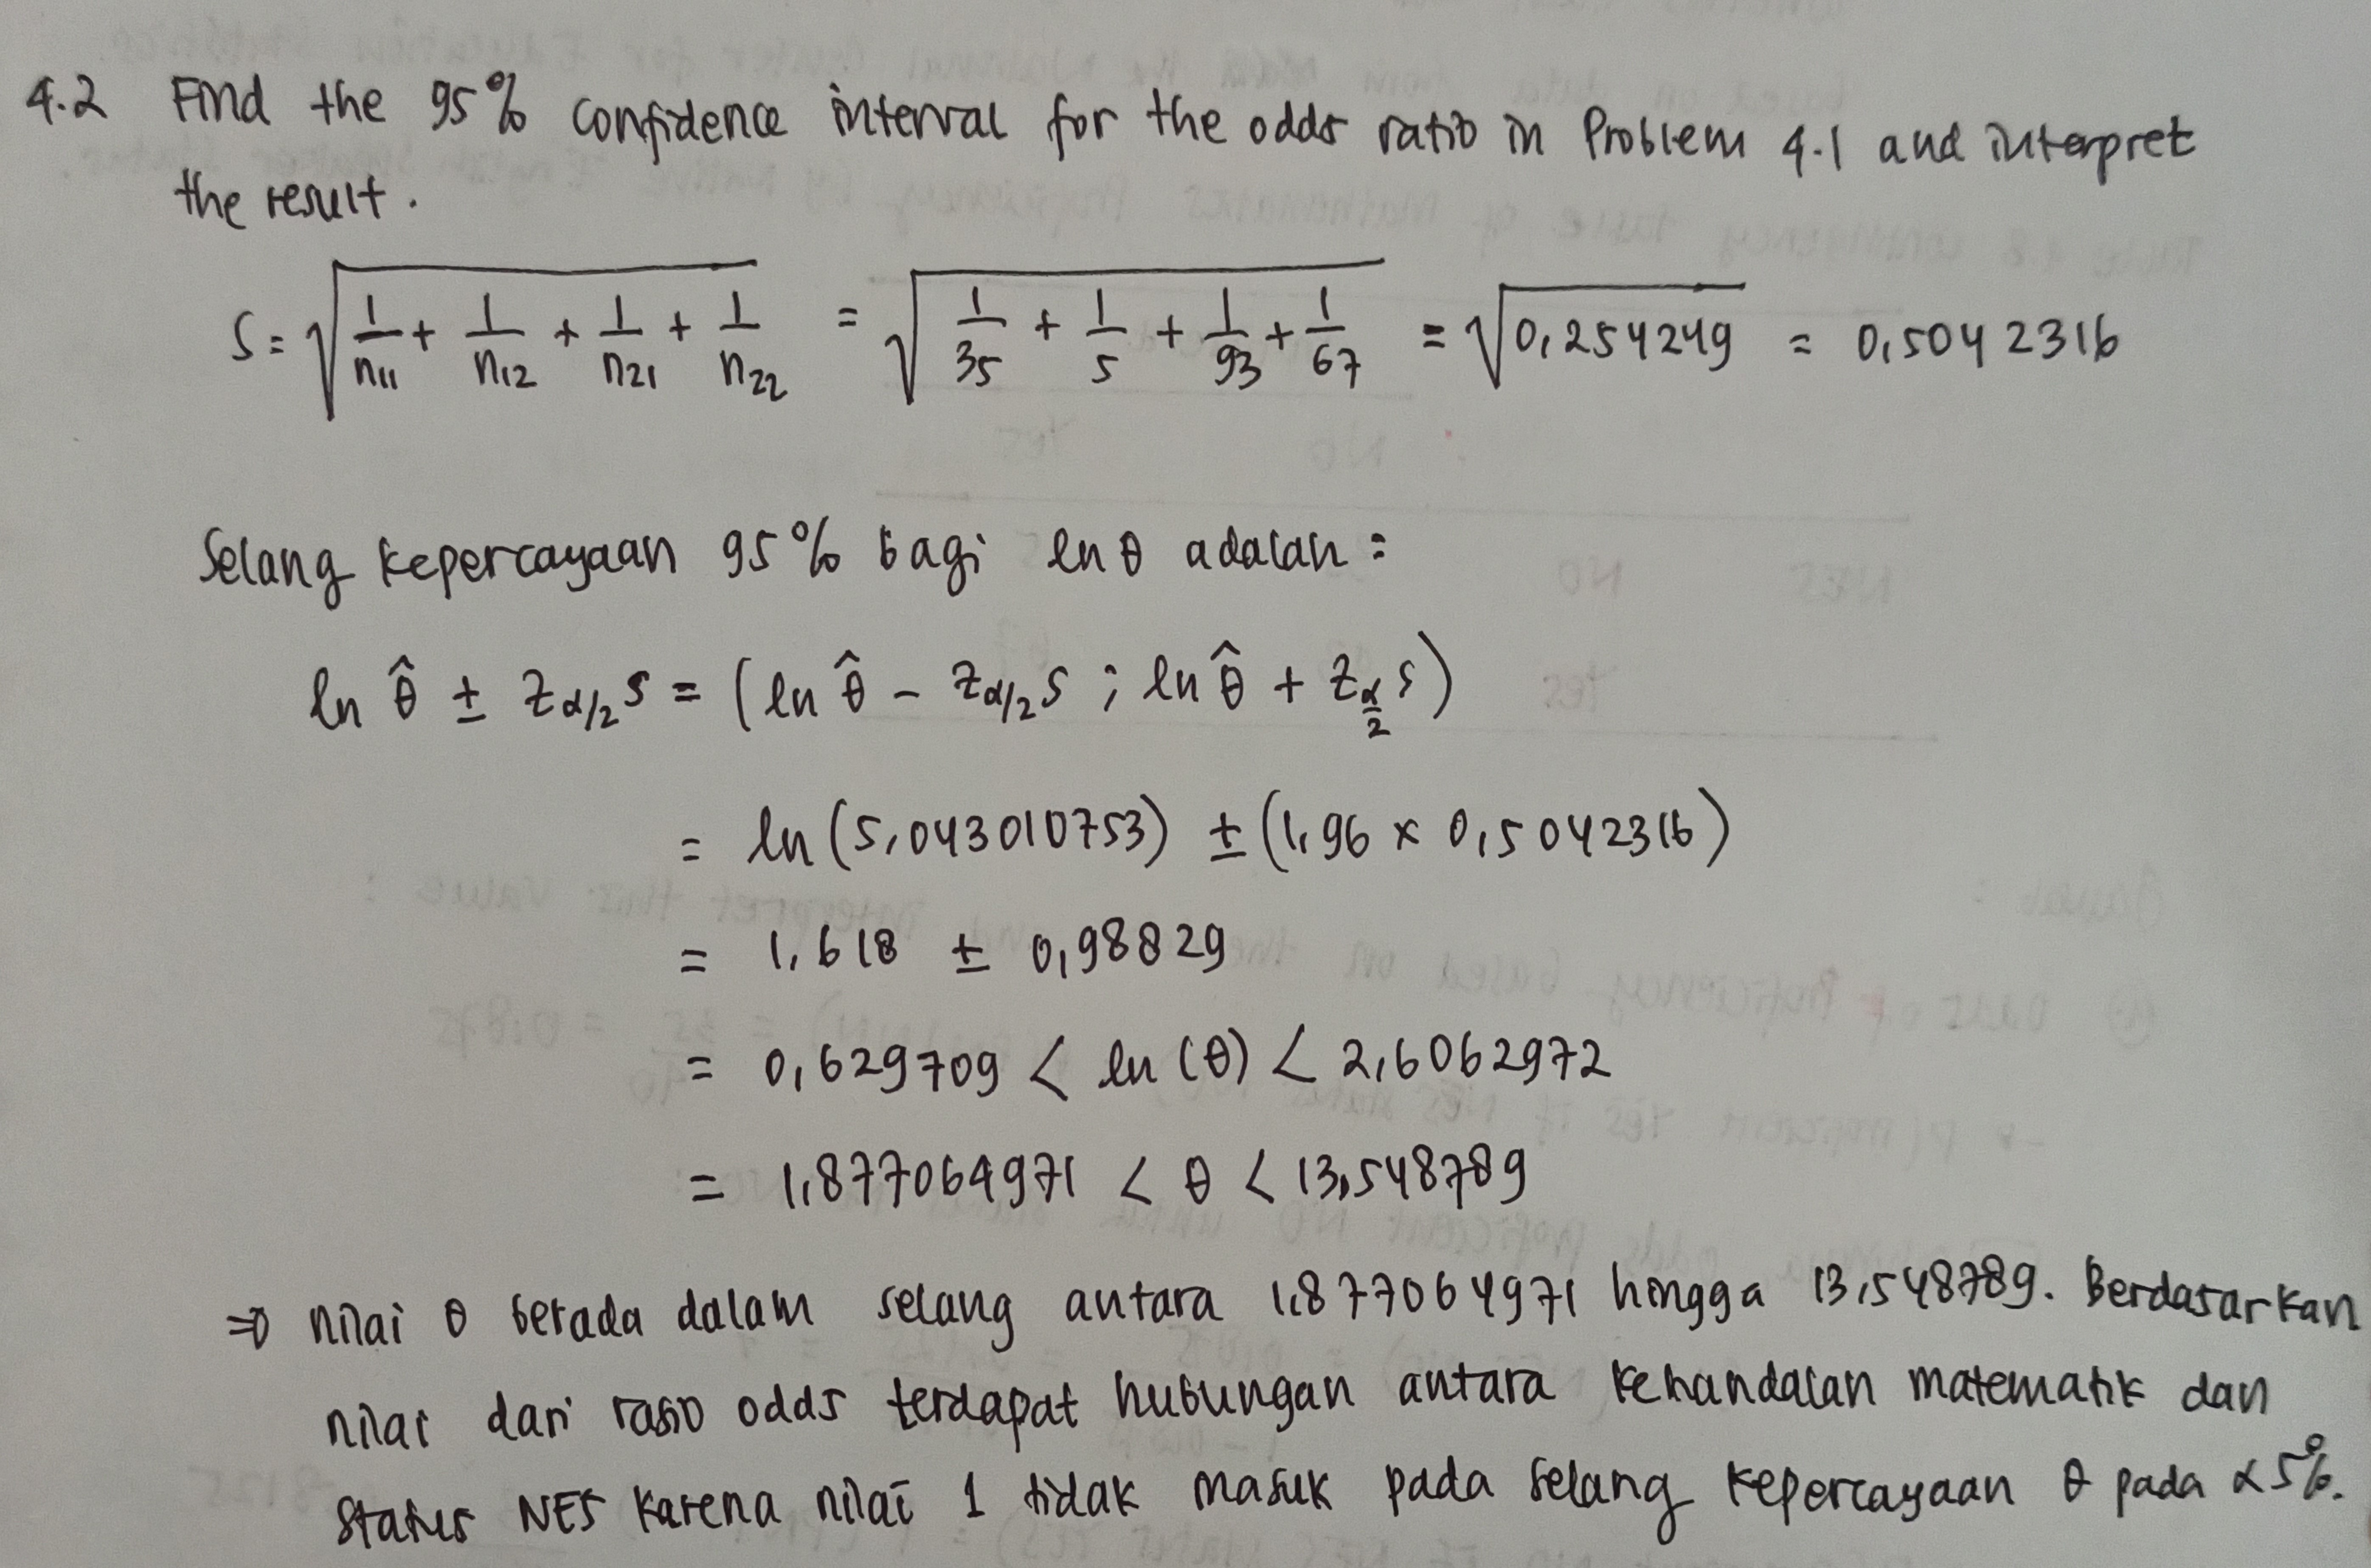 4.2 Find the 95% confidence interval for the odds ratio in Problem 4.1 and interpret
the result.
S = √(1/n₁₁ + 1/n₁₂ + 1/n₂₁ + 1/n₂₂) = √(1/35 + 1/5 + 1/93 + 1/67) = √0,254249 = 0,5042316
Selang kepercayaan 95% bagi ln θ adalah :
ln θ̂ ± Z_α/2 S = (ln θ̂ - Z_α/2 S ; ln θ̂ + Z_α/2 S)
= ln (5,043010753) ± (1,96 x 0,5042316)
= 1,618 ± 0,98829
= 0,629709 < ln (θ) < 2,6062972
= 1,877064971 < θ < 13,548789
⇒ nilai θ berada dalam selang antara 1,877064971 hingga 13,548789. Berdasarkan
nilai dari rasio odds terdapat hubungan antara kehandalan matematik dan
status NES karena nilai 1 tidak masuk pada selang kepercayaan θ pada α 5%.